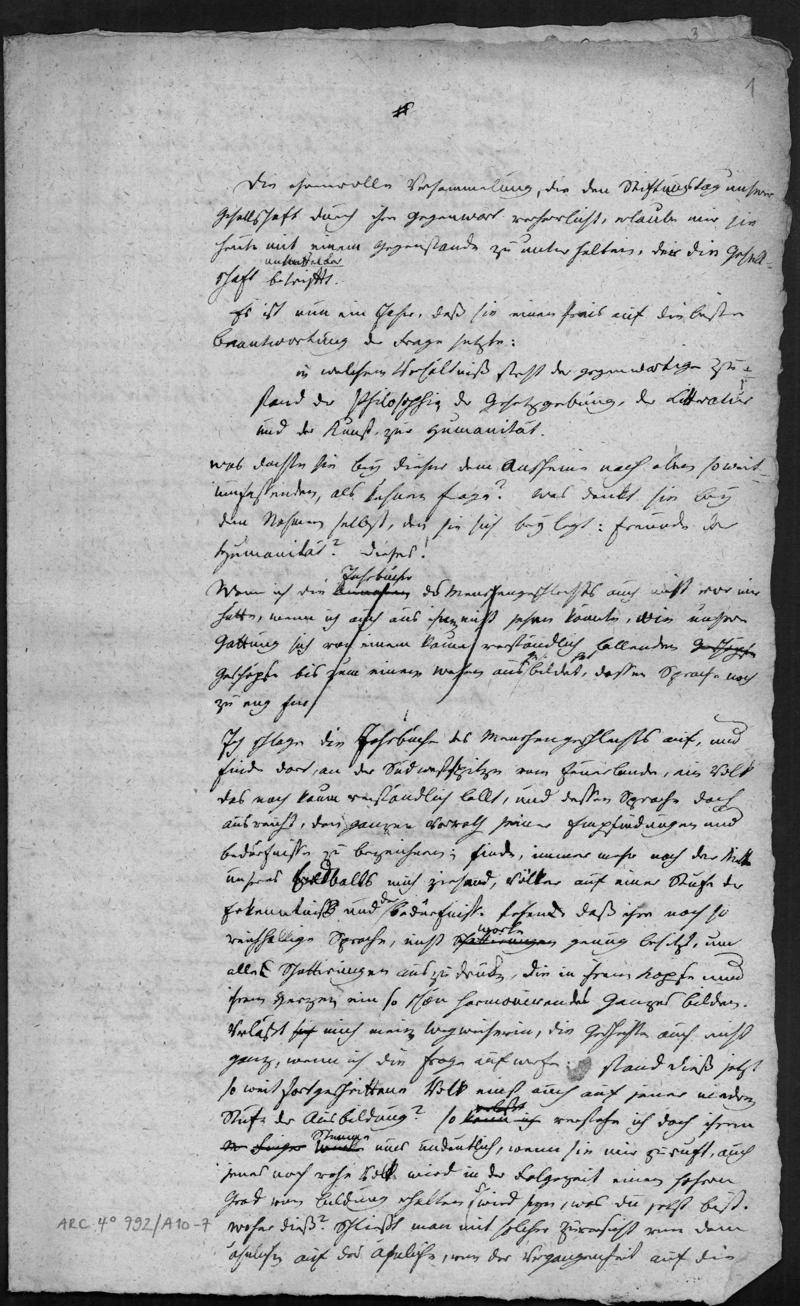 3
1
Die ehrenvolle Versammlung, die den Stiftungstag unserer
Gesellschaft durch ihre Gegenwart verherrlicht, erlaube mir sie
heute mit einem Gegenstande zu unterhalten, der die Gesell-
unmittelbar
schaft betrifft.
Es ist nun ein Jahr, daß sie einen Preis auf die beste
Beantwortung der Frage setzte:
in welchem Verhältniß steht der gegenwärtige Zu-
stand der Philosophie, der Gesetzgebung, der Litteratur
und der Kunst, zur Humanität.
was dachte sie bey dieser dem Anscheine nach eben so weit-
umfassenden, als kühnen Frage? was denkt sie bey
dem Nahmen selbst, den sie sich beylegt: Freunde der
Humanität? dieses!
Jahrbücher
Wenn ich die des Menschengeschlechts auch nicht vor mir
hätte, wenn ich auch aus ihnen nicht sehen könnte, wie unsere
Gattung sich von einem kaum verständlich lallenden
Geschöpfe bis zum einem Wesen ausbildet, dessen Sprache noch
zu eng für
Ich schlage die Jahrbücher des Menschengeschlechts auf, und
finde dort, an der Südwestspitze vom Feuerlande, ein Volk
das noch kaum verständlich lallt, und dessen Sprache doch
ausreicht, den ganzen Vorrath seiner Empfindungen und
Bedürfnisse zu bezeichnen; finde, immer mehr nach der Mitte
unseres Erdballs mich ziehend, Völker auf einer Stufe der
Erkenntniß und der Bedürfnisse stehend daß ihre noch so
worte
reichhaltige Sprache, nicht Schattirungen genug besitzt, um
alle Schattirungen auszudrücken, die in ihrem Kopfe und
ihrem Herzen ein so schön harmonirendes Ganzes bilden.
Verläßt mich meine Wegweiserin, die Geschichte auch nicht
ganz, wenn ich die Frage aufwerfe: stand dieß jetzt
so weit fortgeschrittene Volk einst auch auf jener niedern
Stufe der Ausbildung? so verstehe ich doch ihren
Stimme
nur undeutlich, wenn sie mir zuruft, auch
jenes noch rohe Volk wird in der Folgezeit einen höhern
Grad von Bildung erhalten, wird seyn, was du jetzt bist.
woher dieß? Schließt man mit solcher Zuversicht von dem
ähnlichen auf das Ähnliche, von der Vergangenheit auf die
ARC. 4° 992/A10-7